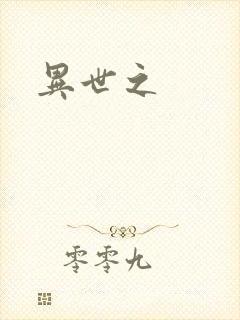 異世之
零零九